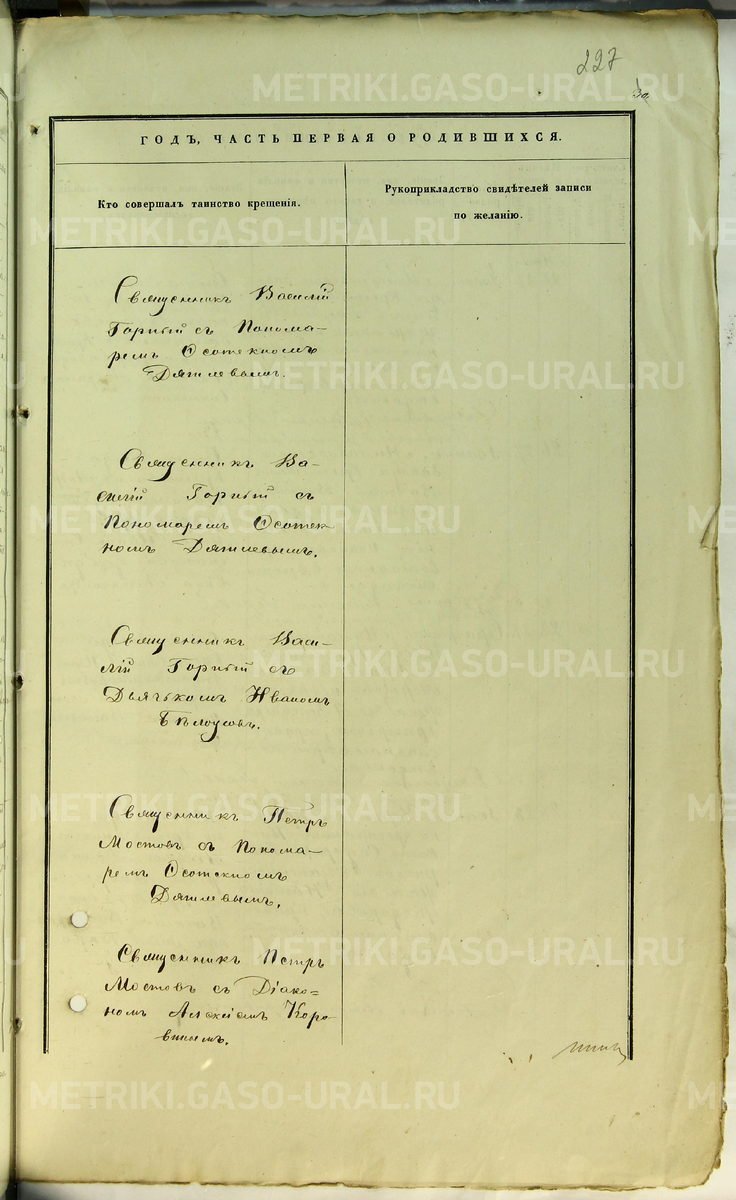 227
30
ГОДЪ, ЧАСТЬ ПЕРВАЯ О РОДИВШИХСЯ.
Кто совершалъ таинство крещенія.
Рукоприкладство свидѣтелей записи
по желанію.
Священникъ Василій
Горный съ Понома-
ремъ Ѳеотекномъ
Дятлевымъ.
Священникъ Ва-
силій Горный съ
Пономаремъ Ѳеотек-
номъ Дятлевымъ.
Священникъ Васи-
лій Горный съ
Дьячькомъ Иваномъ
Бѣлоусовъ.
Священникъ Петръ
Мостовъ съ Понома-
ремъ Ѳеотекномъ
Дятлевымъ.
Священникъ Петръ
Мостовъ съ Діако=
номъ Алексіемъ Коро-
винымъ.
METRIKI.GASO-URAL.RU